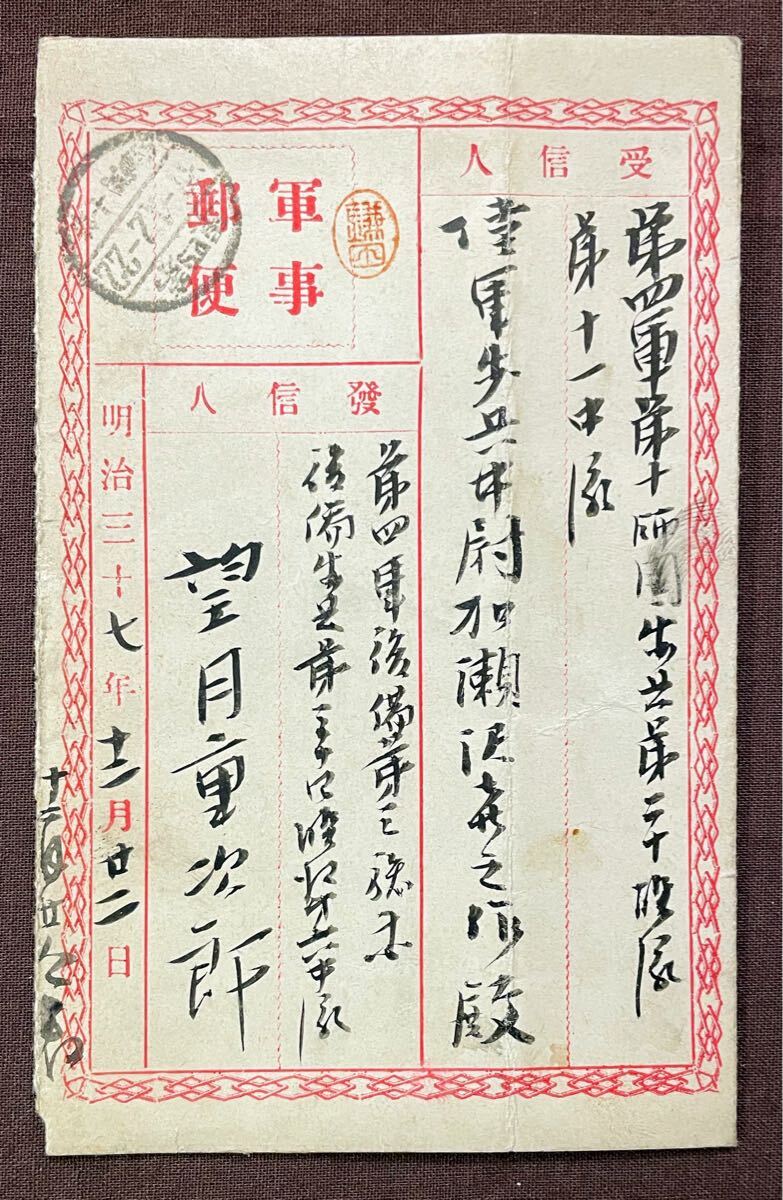 受信人
第四軍第十師團歩兵第二十聯隊
第十一中隊
陸軍歩兵中尉加瀬沢喜之作殿
軍事
郵便
發信人
第四軍後備第三旅團
後備歩兵第三十四聯隊第六中隊
望月重次郎
明治三十七年十二月廿二日